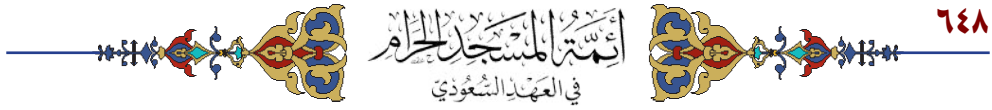 ٦٤٨
أئمة المسجد الحرام
في العهد السعودي